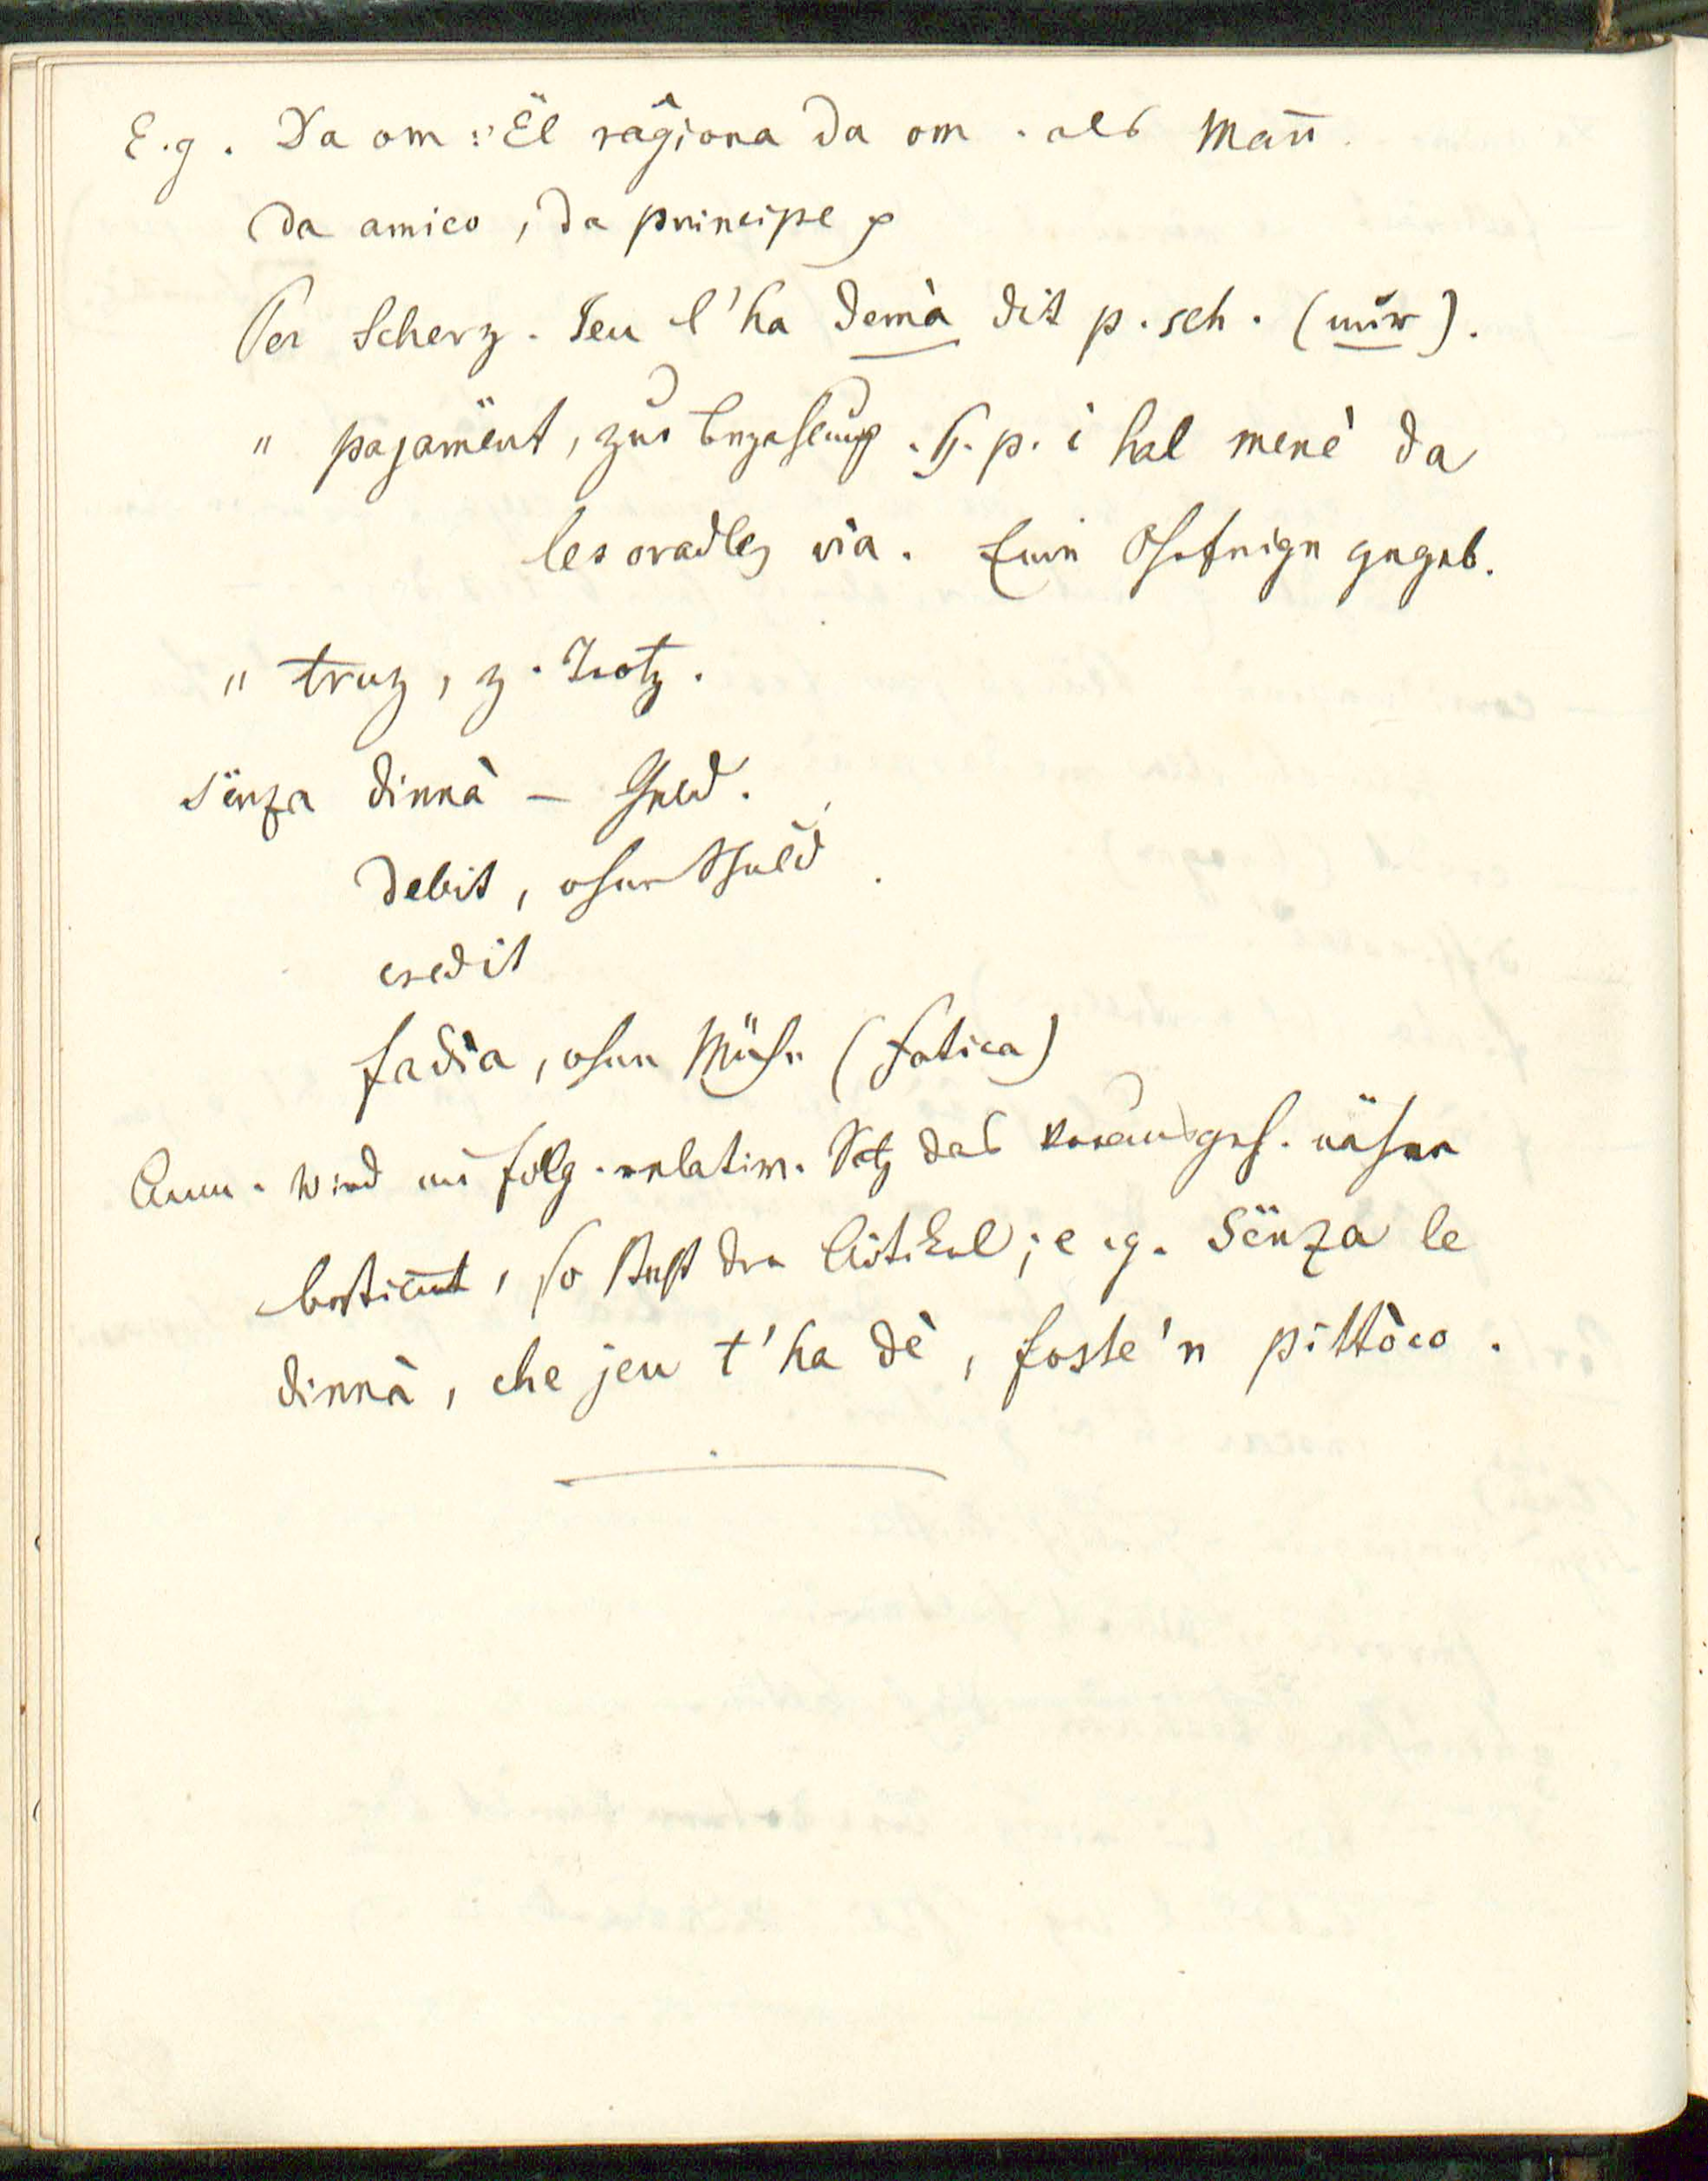 E.g. Da om: Ël rāĝiona da om. als Mañ.
da amico, da principe p
Per Scherz. Jeu l'ha demà dit p. sch. (nur).
" pajamënt, zur Bezahlung. P. p. i hal menè da
les oradles via. Eine Ohrfeige gegeb.
" truz, z. Trotz.
Sënza dinnà – Geld.
debit, ohne Schuld.
credit
fadìa, ohne Mühe (fatica)
Anm. Wird im folg. relativ. Satz das vorausgeh. näher
bestim̄t, so steht der Artikel; e.g. Sënza le
dinnà, che jeu t'ha dè, foste'n pittòco.